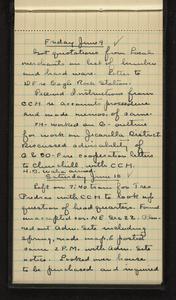 Friday June 9
Got quotations from local
merchants on list of lumber
and hard ware. Letter to
DF re Eagle Rock Station.
Received instruction from
CCH re account procedure
and made memos. of same.
FH: worked on G- outline
for work on Jicarilla District
Discussed advisability of
G & CO- Pine cooperation letters
to Churchill with CCH.
H.Q. make annual
Saturday June 10
Left on 7:40 train for Tres
Piedras with CCH to look up
question of headquarters. Found
unaccepted for NE Sec 22.
out Adm. Site including
spring, made map & posted
same 2 P.M. with Adm. Site
notice. Looked over house
to be purchased and required